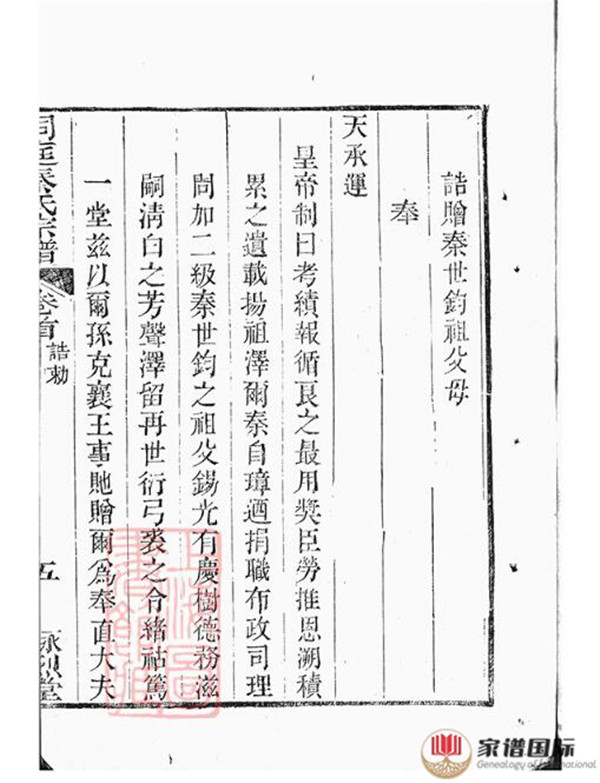 誥贈秦世鈞祖父母
奉
天承運
皇帝制曰考績報循良之最用奬臣勞推恩溯積
累之遺載揚祖澤爾秦自璋迺捐職布政司理
問加二級秦世鈞之祖父錫光有慶樹德務滋
嗣清白之芳聲澤留再世衍弓裘之令緒祜篤
一堂茲以爾孫克襄王事貤贈爾爲奉直大夫
洞庭秦氏宗譜
卷首
誥勅
五
家谱国际
Genealogy of International